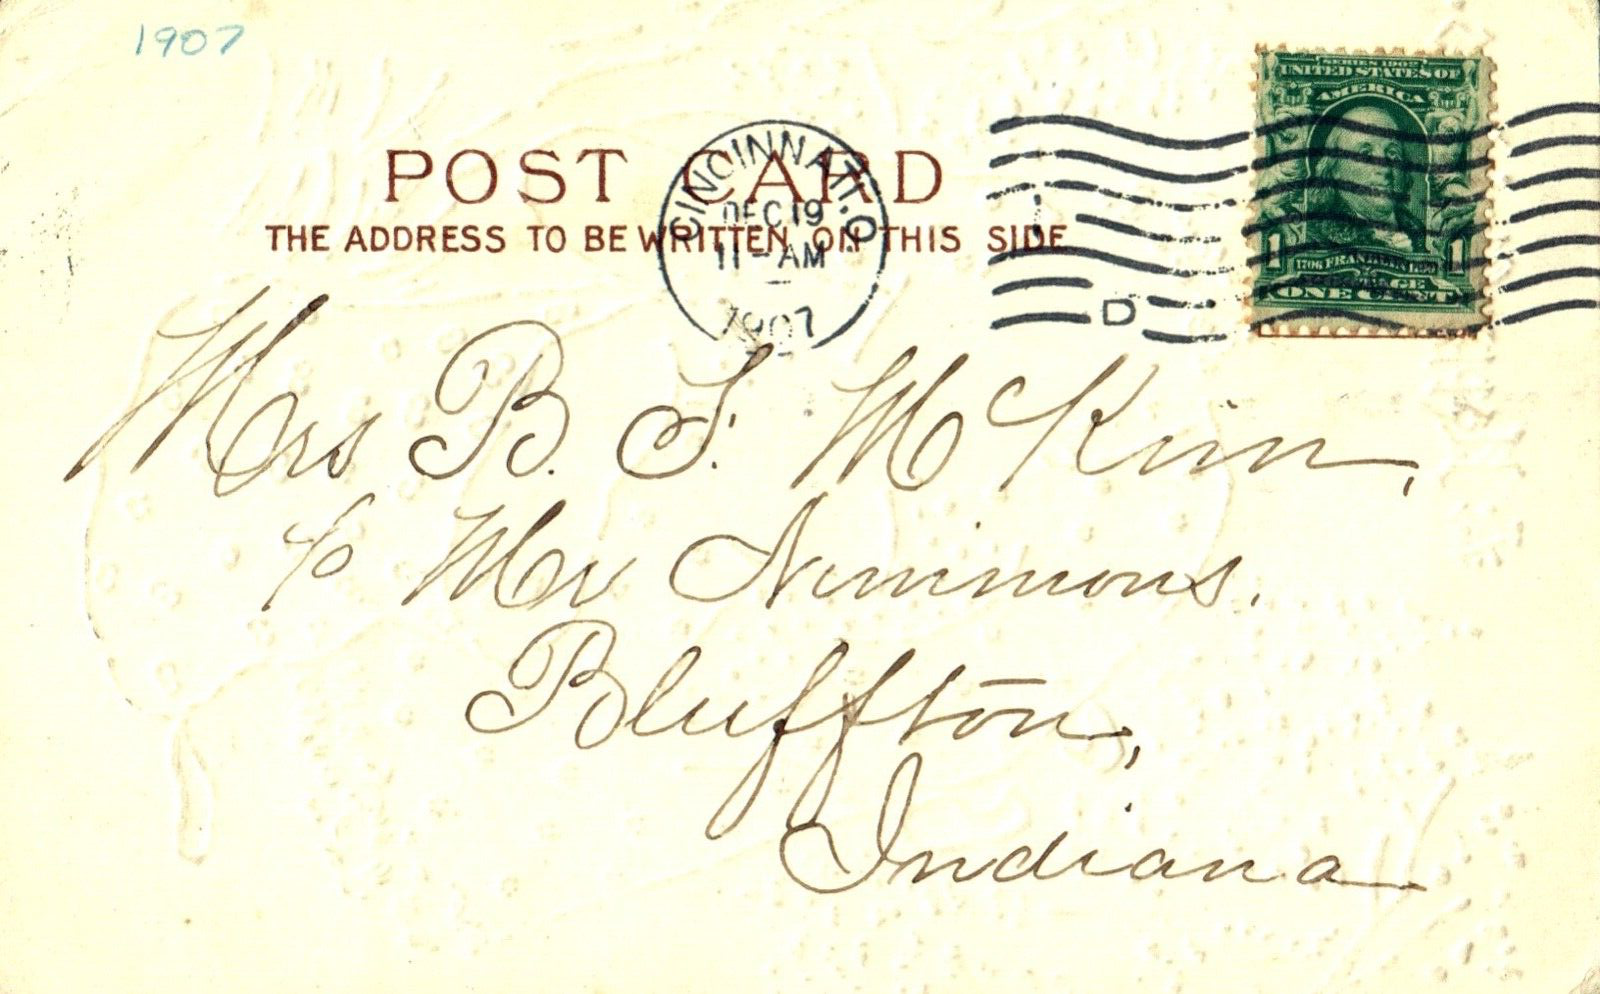 1907
SERIES 1902
UNITED STATES OF
AMERICA
POST CARD
CINCINNATI, O.
DEC 19
11 - AM
1907
THE ADDRESS TO BE WRITTEN ON THIS SIDE
D
1 1
1706 FRANKLIN 1790
ONE CENT
Mrs B. F. McKim,
c/o Mr Nimmons.
Bluffton,
Indiana